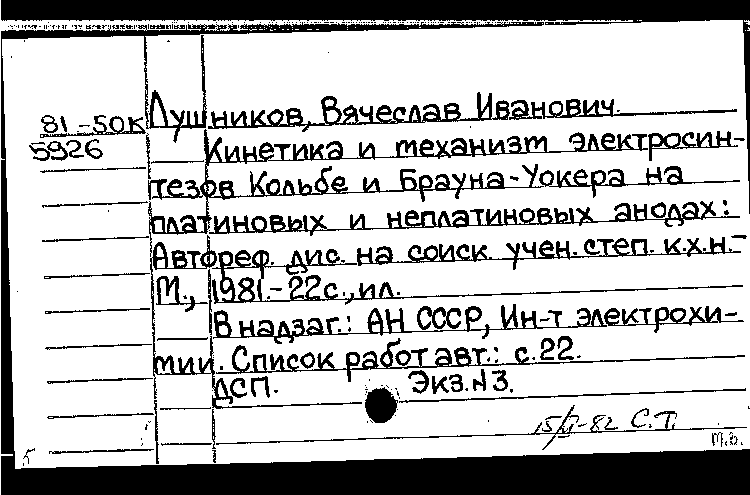 81-50к Лушников, Вячеслав Иванович.
5926 Кинетика и механизм электросин-
тезов Кольбе и Брауна-Уокера на
платиновых и неплатиновых анодах:
Автореф. дис. на соиск. учен. степ. к.х.н.-
М., 1981.-22с., ил.
В надзаг.: АН СССР, Ин-т электрохи-
мии. Список работ авт.: с.22.
ДСП. Экз.N3.
С.Т.
м.в.
5